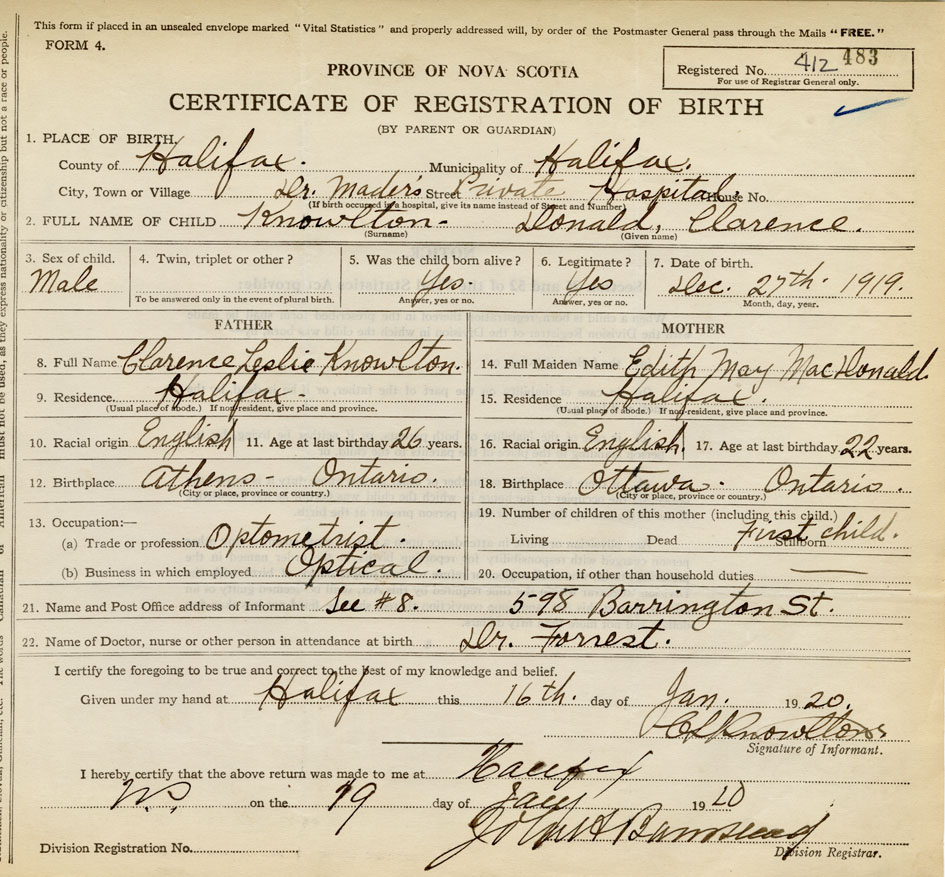 This form if placed in an unsealed envelope marked "Vital Statistics" and properly addressed will, by order of the Postmaster General pass through the Mails "FREE."
FORM 4.
Registered No. 412 483
For use of Registrar General only.
PROVINCE OF NOVA SCOTIA
CERTIFICATE OF REGISTRATION OF BIRTH
(BY PARENT OR GUARDIAN)
1. PLACE OF BIRTH,
County of Halifax. Municipality of Halifax.
City, Town or Village Dr. Mader's Street Private Hospital. House No.
(If birth occured in a hospital, give its name instead of Street and Number)
2. FULL NAME OF CHILD Knowlton- Donald, Clarence.
(Surname) (Given name)
3. Sex of child. 4. Twin, triplet or other? 5. Was the child born alive? 6. Legitimate? 7. Date of birth.
Male Yes. Yes Dec. 27th. 1919.
To be answered only in the event of plural birth. Answer, yes or no. Answer, yes or no. Month, day, year.
FATHER MOTHER
8. Full Name Clarence Leslie Knowlton. 14. Full Maiden Name Edith May MacDonald.
9. Residence. Halifax- 15. Residence Halifax.
(Usual place of abode.) If non-resident, give place and province. (Usual place of abode.) If non-resident, give place and province.
10. Racial origin English 11. Age at last birthday 26 years. 16. Racial origin English. 17. Age at last birthday 22 years.
12. Birthplace Athens- Ontario. 18. Birthplace Ottawa. Ontario.
(City or place, province or country.) (City or place, province or country.)
13. Occupation:— 19. Number of children of this mother (including this child.)
(a) Trade or profession Optometrist. Living Dead Stillborn First child.
(b) Business in which employed Optical. 20. Occupation, if other than household duties —
21. Name and Post Office address of Informant See #8. 598 Barrington St.
22. Name of Doctor, nurse or other person in attendance at birth Dr. Forrest.
I certify the foregoing to be true and correct to the best of my knowledge and belief.
Given under my hand at Halifax this 16th. day of Jan. 1920.
C L Knowlton
Signature of Informant.
I hereby certify that the above return was made to me at Halifax
N.S. on the 19 day of Jany 1920
John H Barnstead
Division Registration No. Division Registrar.